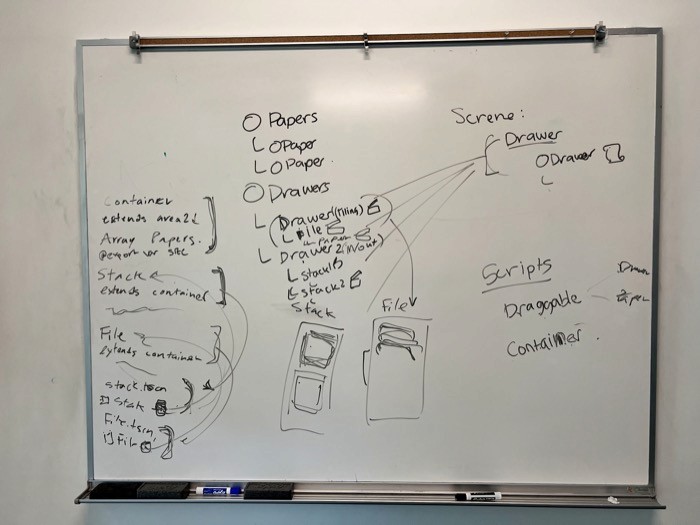 Container
extends area2d
Array Papers.
Stack
extends container
File
Extends container
stack.tscn
Stak
File.tscn
File
O Papers
L O Paper
L O Paper
O Drawers
L Drawer (filing)
L File
L Drawer 2 (in/out)
L stack1
L stack2
Stack
File
Screne:
Drawer
O Drawer
L
Scripts
Draggable
Container.